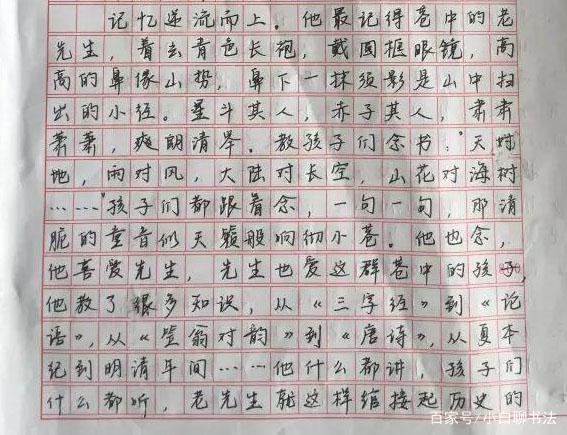 记忆逆流而上。他最记得巷中的老
先生，着玄青色长袍，戴圆框眼镜，高
高的鼻像山势，鼻下一抹须影是山中扫
出的小径。星斗其人，赤子其人，肃肃
萧萧，爽朗清举。教孩子们念书：“天对
地，雨对风，大陆对长空，山花对海树
……”孩子们都跟着念，一句一句，那清
脆的童音似天籁般响彻小巷。他也念，
他喜爱先生，先生也爱这群巷中的孩子，
他教了很多知识，从《三字经》到《论
语》，从《笠翁对韵》到《唐诗》，从夏本
纪到明清年间……他什么都讲，孩子们
什么都听，老先生就这样绾接起历史的
百家号/小白聊书法